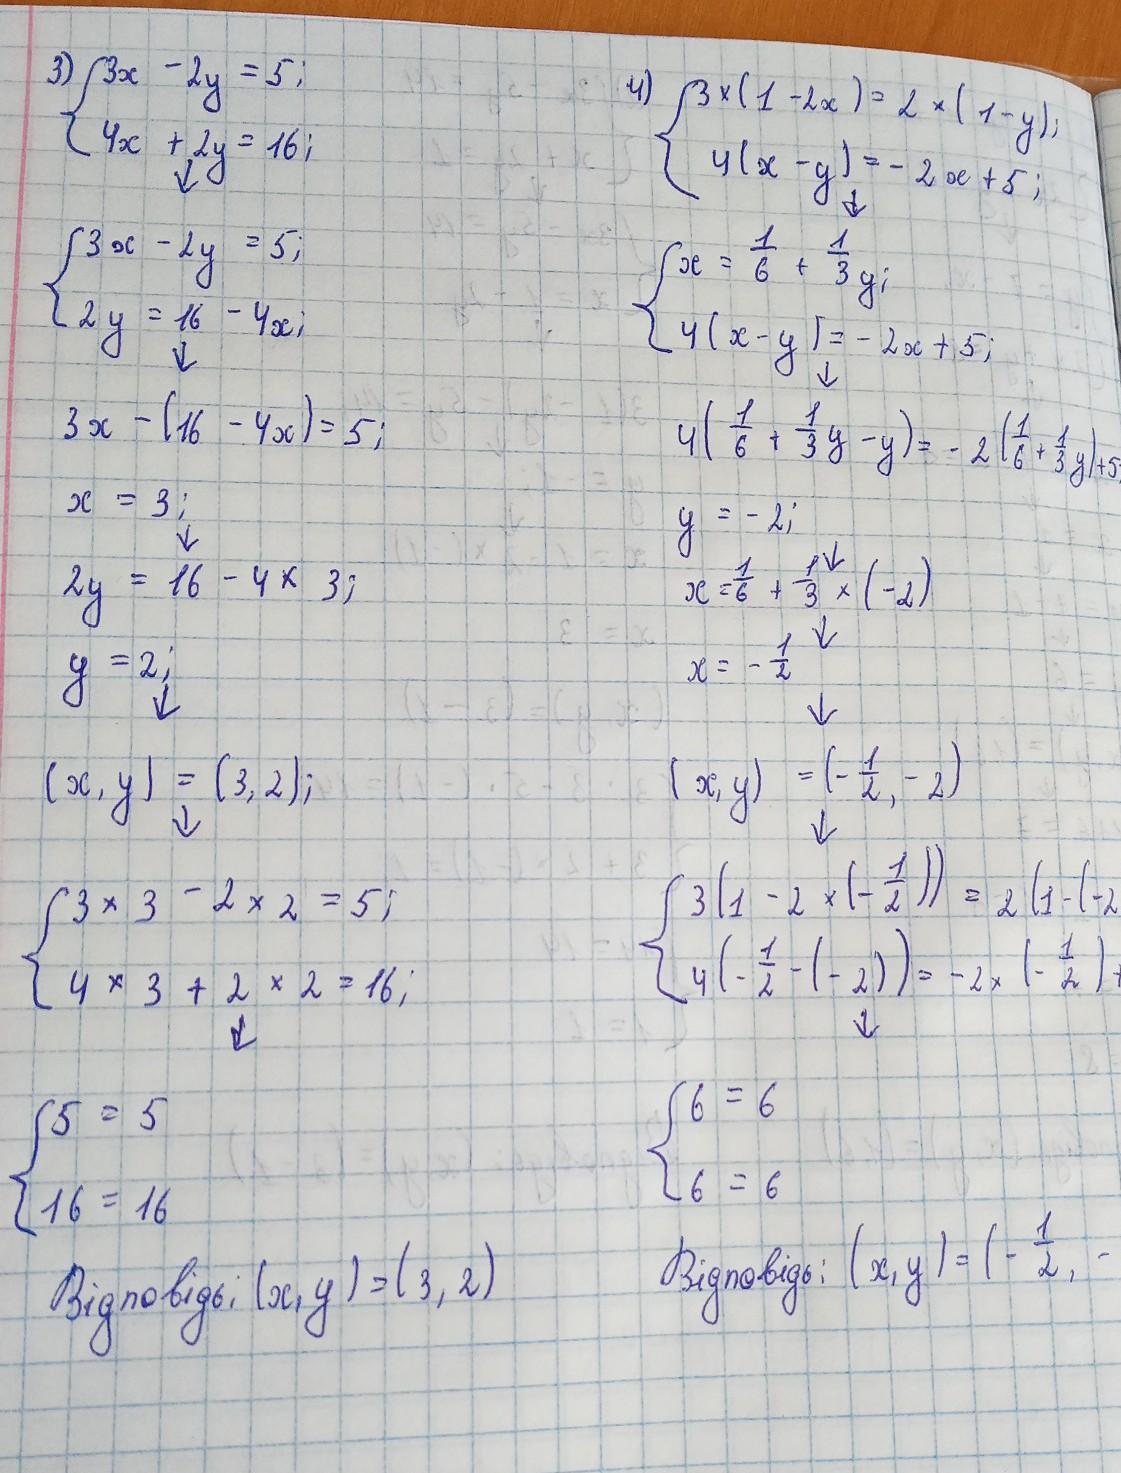 3) { 3x - 2y = 5;
4x + 2y = 16;
↓
{ 3x - 2y = 5;
2y = 16 - 4x;
↓
3x - (16 - 4x) = 5;
x = 3;
↓
2y = 16 - 4 × 3;
y = 2;
↓
(x, y) = (3, 2);
↓
{ 3 × 3 - 2 × 2 = 5;
4 × 3 + 2 × 2 = 16;
↓
{ 5 = 5
16 = 16
Відповідь: (x, y) = (3, 2)
4) { 3 × (1 - 2x) = 2 × (1 - y);
4(x - y) = - 2x + 5;
↓
{ x = 1/6 + 1/3 y;
4(x - y) = - 2x + 5;
↓
4(1/6 + 1/3 y - y) = - 2(1/6 + 1/3 y) + 5;
y = - 2;
↓
x = 1/6 + 1/3 × (-2)
↓
x = - 1/2
↓
(x, y) = (- 1/2, - 2)
↓
{ 3(1 - 2 × (- 1/2)) = 2(1 - (-2
4(- 1/2 - (- 2)) = - 2 × (- 1/2) +
↓
{ 6 = 6
6 = 6
Відповідь: (x, y) = (- 1/2, -